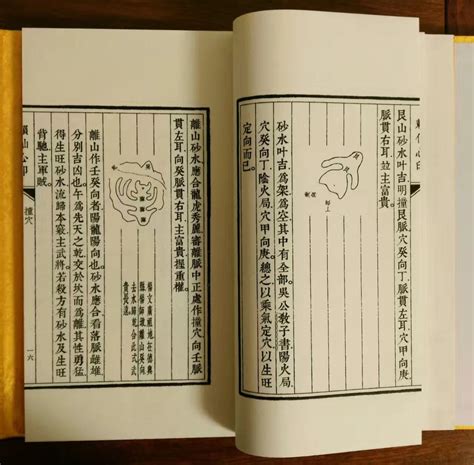 艮山砂水叶吉明撞艮脈穴癸向丁脈貫左耳穴甲向庚
脈貫右耳並主富貴
砂水叶吉為架為空其中有全部吳公教子書陽火局
穴癸向丁陰火局穴甲向庚總之以乘氣定穴以生旺
定向而已
離山砂水應合龍虎秀麗審離脈中正處作撞穴向壬脈
貫左耳向癸脈貫右耳主富貴揑重權
離山作壬癸向者陽龍陽向也砂水應合看落脈雌雄
分別吉凶也午為先天之乾交於坎而為離其性勇猛
得生旺砂水流歸本寂主武將若殺方有砂水及生旺
背馳主軍賊
撞穴
一六